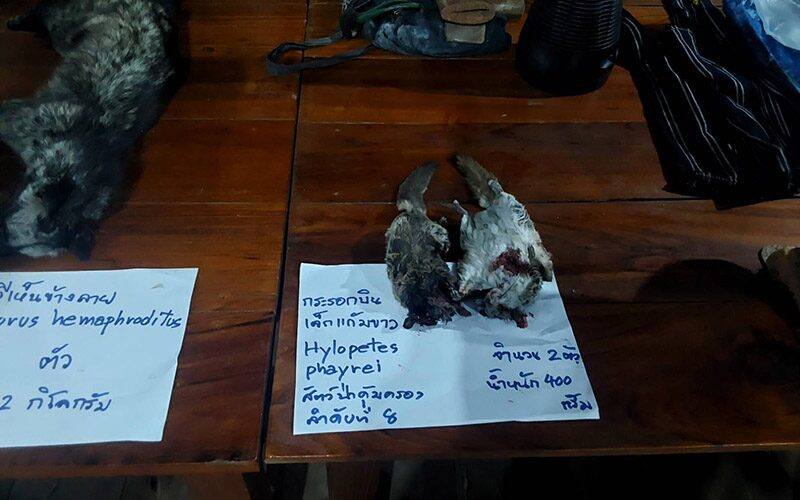 เห็นข้างลาย
urus hemaphroditus
ตัว
2 กิโลกรัม
กระรอกบิน
เล็กแก้มขาว
Hylopetes
phayrei
สัตว์ป่าคุ้มครอง
ลำดับที่ 8
จำนวน 2 ตัว
น้ำหนัก 400
กรัม